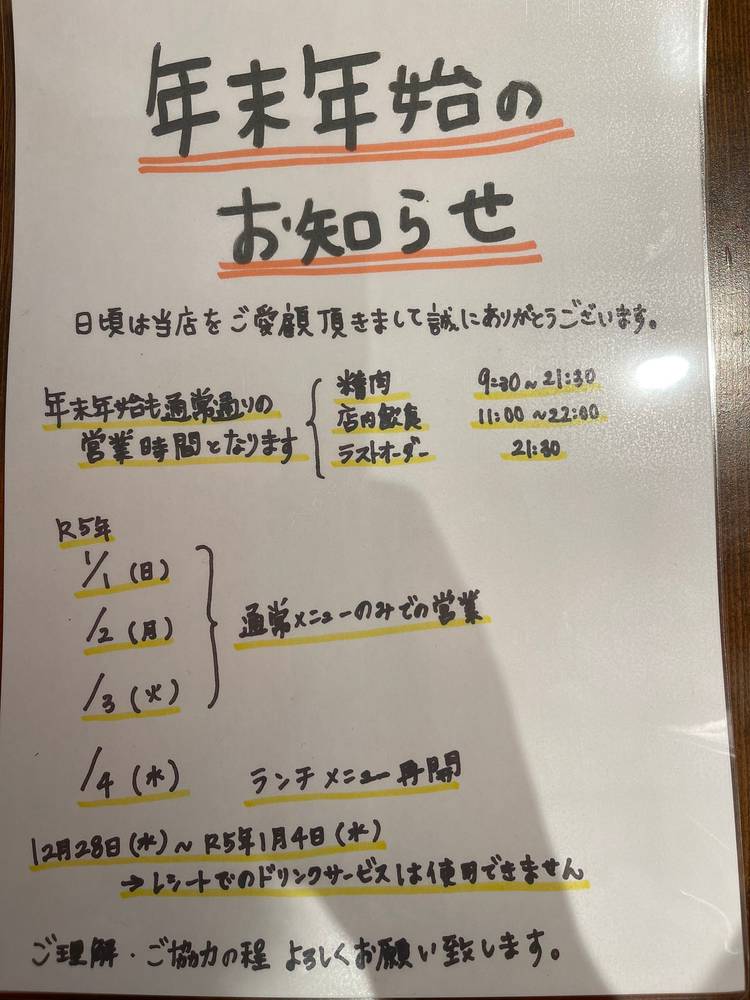 年末年始の
お知らせ
日頃は当店をご愛顧頂きまして誠にありがとうございます。
年末年始も通常通りの
営業時間となります
精肉 9:30～21:30
店内飲食 11:00～22:00
ラストオーダー 21:30
R5年
1/1(日)
/2(月)
/3(火)
通常メニューのみでの営業
/4(水) ランチメニュー再開
12月28日(水)～R5年1月4日(水)
→レシートでのドリンクサービスは使用できません
ご理解・ご協力の程 よろしくお願い致します。